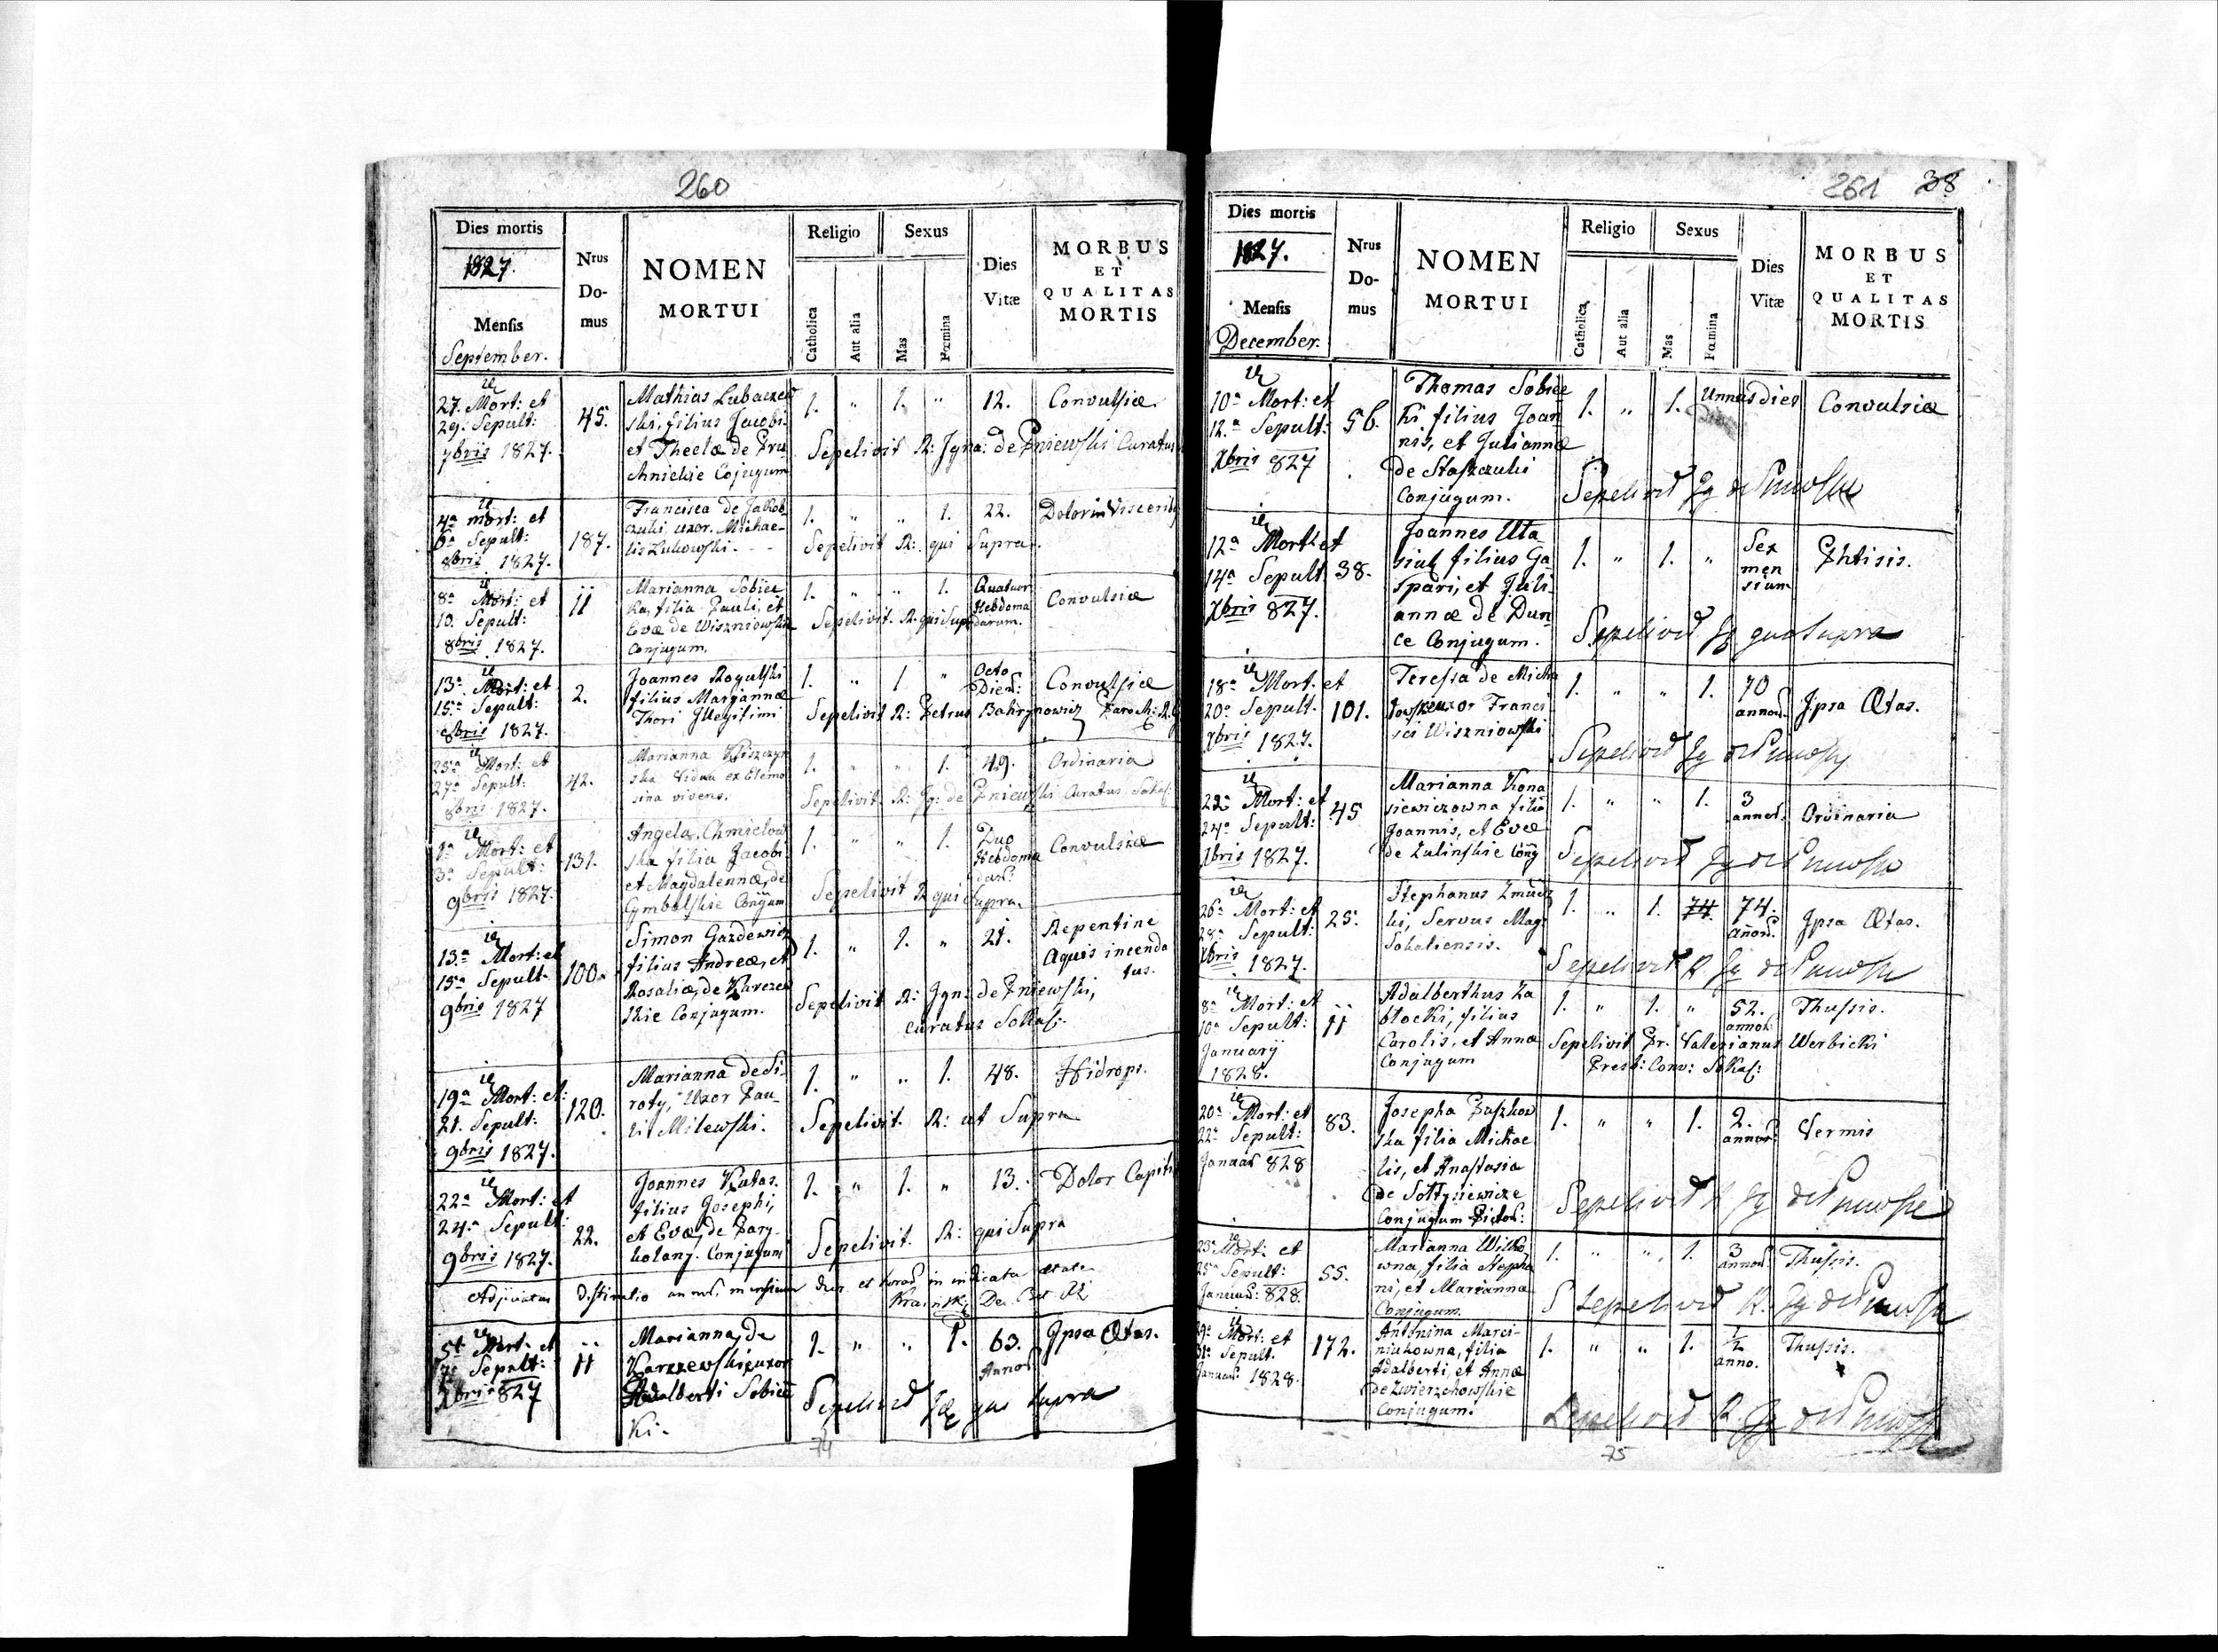 260
Dies mortis
1827.
Mensis
September.
Nrus
Do-
mus
NOMEN
MORTUI
Religio
Catholica
Aut alia
Sexus
Mas
Fœmina
Dies
Vitæ
MORBUS
ET
QUALITAS
MORTIS
27. Mort: et
29. Sepult:
7bris 1827.
45.
Mathias Lubaczew
ski, filius Jacobi
et Theclæ de Pru
chnickie Cojugum
1. " 1. " 12.
Convulsiæ.
Sepelivit R: Igna: de Pniewski Curatus
4a mort: et
6a Sepult:
8bris 1827.
187.
Francisca de Jakob
czuki uxor Michae-
lis Zukowski.
1. " " 1. 22.
Dolor in Viscerib
Sepelivit R: qui Supra.
8a Mort: et
10. Sepult:
8bris 1827.
11
Marianna Sobiec
ka, filia Pauli, et
Evæ de Wiszniowskie
Conjugum.
1. " " 1.
Quatuor
Hebdoma
darum.
Convulsiæ
Sepelivit R: qui Sup
13a Mort: et
15a Sepult:
8bris 1827.
2.
Joannes Rogulski
filius Mariannæ
Thori Illegitimi
1. " 1 "
Octo
Dier:
Convulsiæ
Sepelivit R: Petrus Bahrynowicz
25a Mort: et
27a Sepult:
8bris 1827.
42.
Marianna
ska Vidua ex Elemo
sina vivens.
1. " " 1. 49.
Ordinaria
Sepelivit R: Ig: de Pniewski Curatus Sokal:
1a Mort: et
3a Sepult:
9bris 1827.
131.
Angela Chmielow
ska filia Jacobi
et Magdalennæ, de
Cymbalskie Conjum
1. " " 1.
Duo
Hebdoma
dar:
Convulsiæ
Sepelivit R qui Supra.
13a Mort: et
15a Sepult.
9bris 1827
100.
Simon Gazdewicz
filius Andreæ, et
Rosaliæ, de
skie Conjugum.
1. " 1. " 21.
Repentine
Aquis incenda
tus.
Sepelivit R: Ign: de Pniewski,
Curatus Sokal:
19a Mort: et:
21. Sepult:
9bris 1827.
120.
Marianna de Si
roty, Uxor Pau
li Milewski.
1. " " 1. 48.
Hidrops.
Sepelivit. R: ut Supra
22a Mort: et
24a Sepult:
9bris 1827.
22.
Joannes Kutas.
filius Josephi,
et Evæ, de Pary
Conjugum
1. " 1. " 13.
Dolor Capitis
Sepelivit. R: qui Supra
in indicata ætate
5t Mort: et
7a Sepult:
Xbris 827
11
Marianna, de
Karzzewski, uxor
Adalberti Sobiec
ki.
1. " " 1. 63.
Annor
Ipsa Ætas.
Sepelivit qui supra
74
261 38
Dies mortis
1827.
Mensis
December.
Nrus
Do-
mus
NOMEN
MORTUI
Religio
Catholica
Aut alia
Sexus
Mas
Fœmina
Dies
Vitæ
MORBUS
ET
QUALITAS
MORTIS
10a Mort: et
12a Sepult:
Xbris 827
56.
Thomas Sobiec
ki filius Joan
nis, et Juliannæ
de Staszczuki
Conjugum.
1. " 1. Unnus dies
Convulsiæ
Sepelivit Ig de Pniewski
12a Mort: et
14a Sepult
Xbris 827.
38.
Joannes Uta
siuk filius Ga
spari, et Juli
annæ de Dun
ce Conjugum.
1. " 1. "
Sex
men
sium
Phtisis.
Sepelivit Ig qua Supra
18a Mort. et
20a Sepult.
Xbris 1827.
101.
Teressa de Micha
uxor Franci
sci Wiszniowski
1. " " 1. 70
annor:
Ipsa Ætas.
Sepelivit Ig de Pniewski
22a Mort: et
24a Sepult:
Xbris 1827.
45
Marianna Kona
siewiczowna filia
Joannis, et Evæ
de Zulinskie Conj
1. " " 1. 3
annor:
Ordinaria
Sepelivit Ig de Pniewski
26a Mort: et
28a Sepult:
Xbris 1827.
23.
Stephanus
ki, Servus Mag:
Sokaliensis.
1. " 1. 74. 74.
annor:
Ipsa Ætas.
Sepelivit R. Ig de Pniewski
8a Mort: et
10a Sepult:
Januarij
1828.
11
Adalberthus Za
blocki, filius
Carolis, et Annæ
Conjugum
1. " 1. " 52.
annor:
Thussis.
Sepelivit Pr. Valerianus Werbicki
Presb: Conv: Sokal:
20a Mort: et
22a Sepult:
Januar 828
83.
Josepha Puszkow
ska filia Michae
lis, et Anastasia
de Soltysiewicze
Conjugum Pictor:
1. " " 1. 2.
annor:
Vermis
Sepelivit R Ig de Pniewski
23a Mort: et
25a Sepult:
Januar: 828.
55.
Marianna Wilko
wna, filia Stepha
ni, et Marianna
Conjugum.
1. " " 1. 3
annor:
Thussis.
Sepelivit R. Ig de Pniewski
29a Mort: et
31a Sepult.
Januar: 1828.
172.
Antonina Marci-
niukowna, filia
Adalberti, et Annæ
de Zwierzchowskie
Conjugum.
1. " " 1. ½
anno.
Thussis.
Sepelivit R. Ig de Pniewski
75